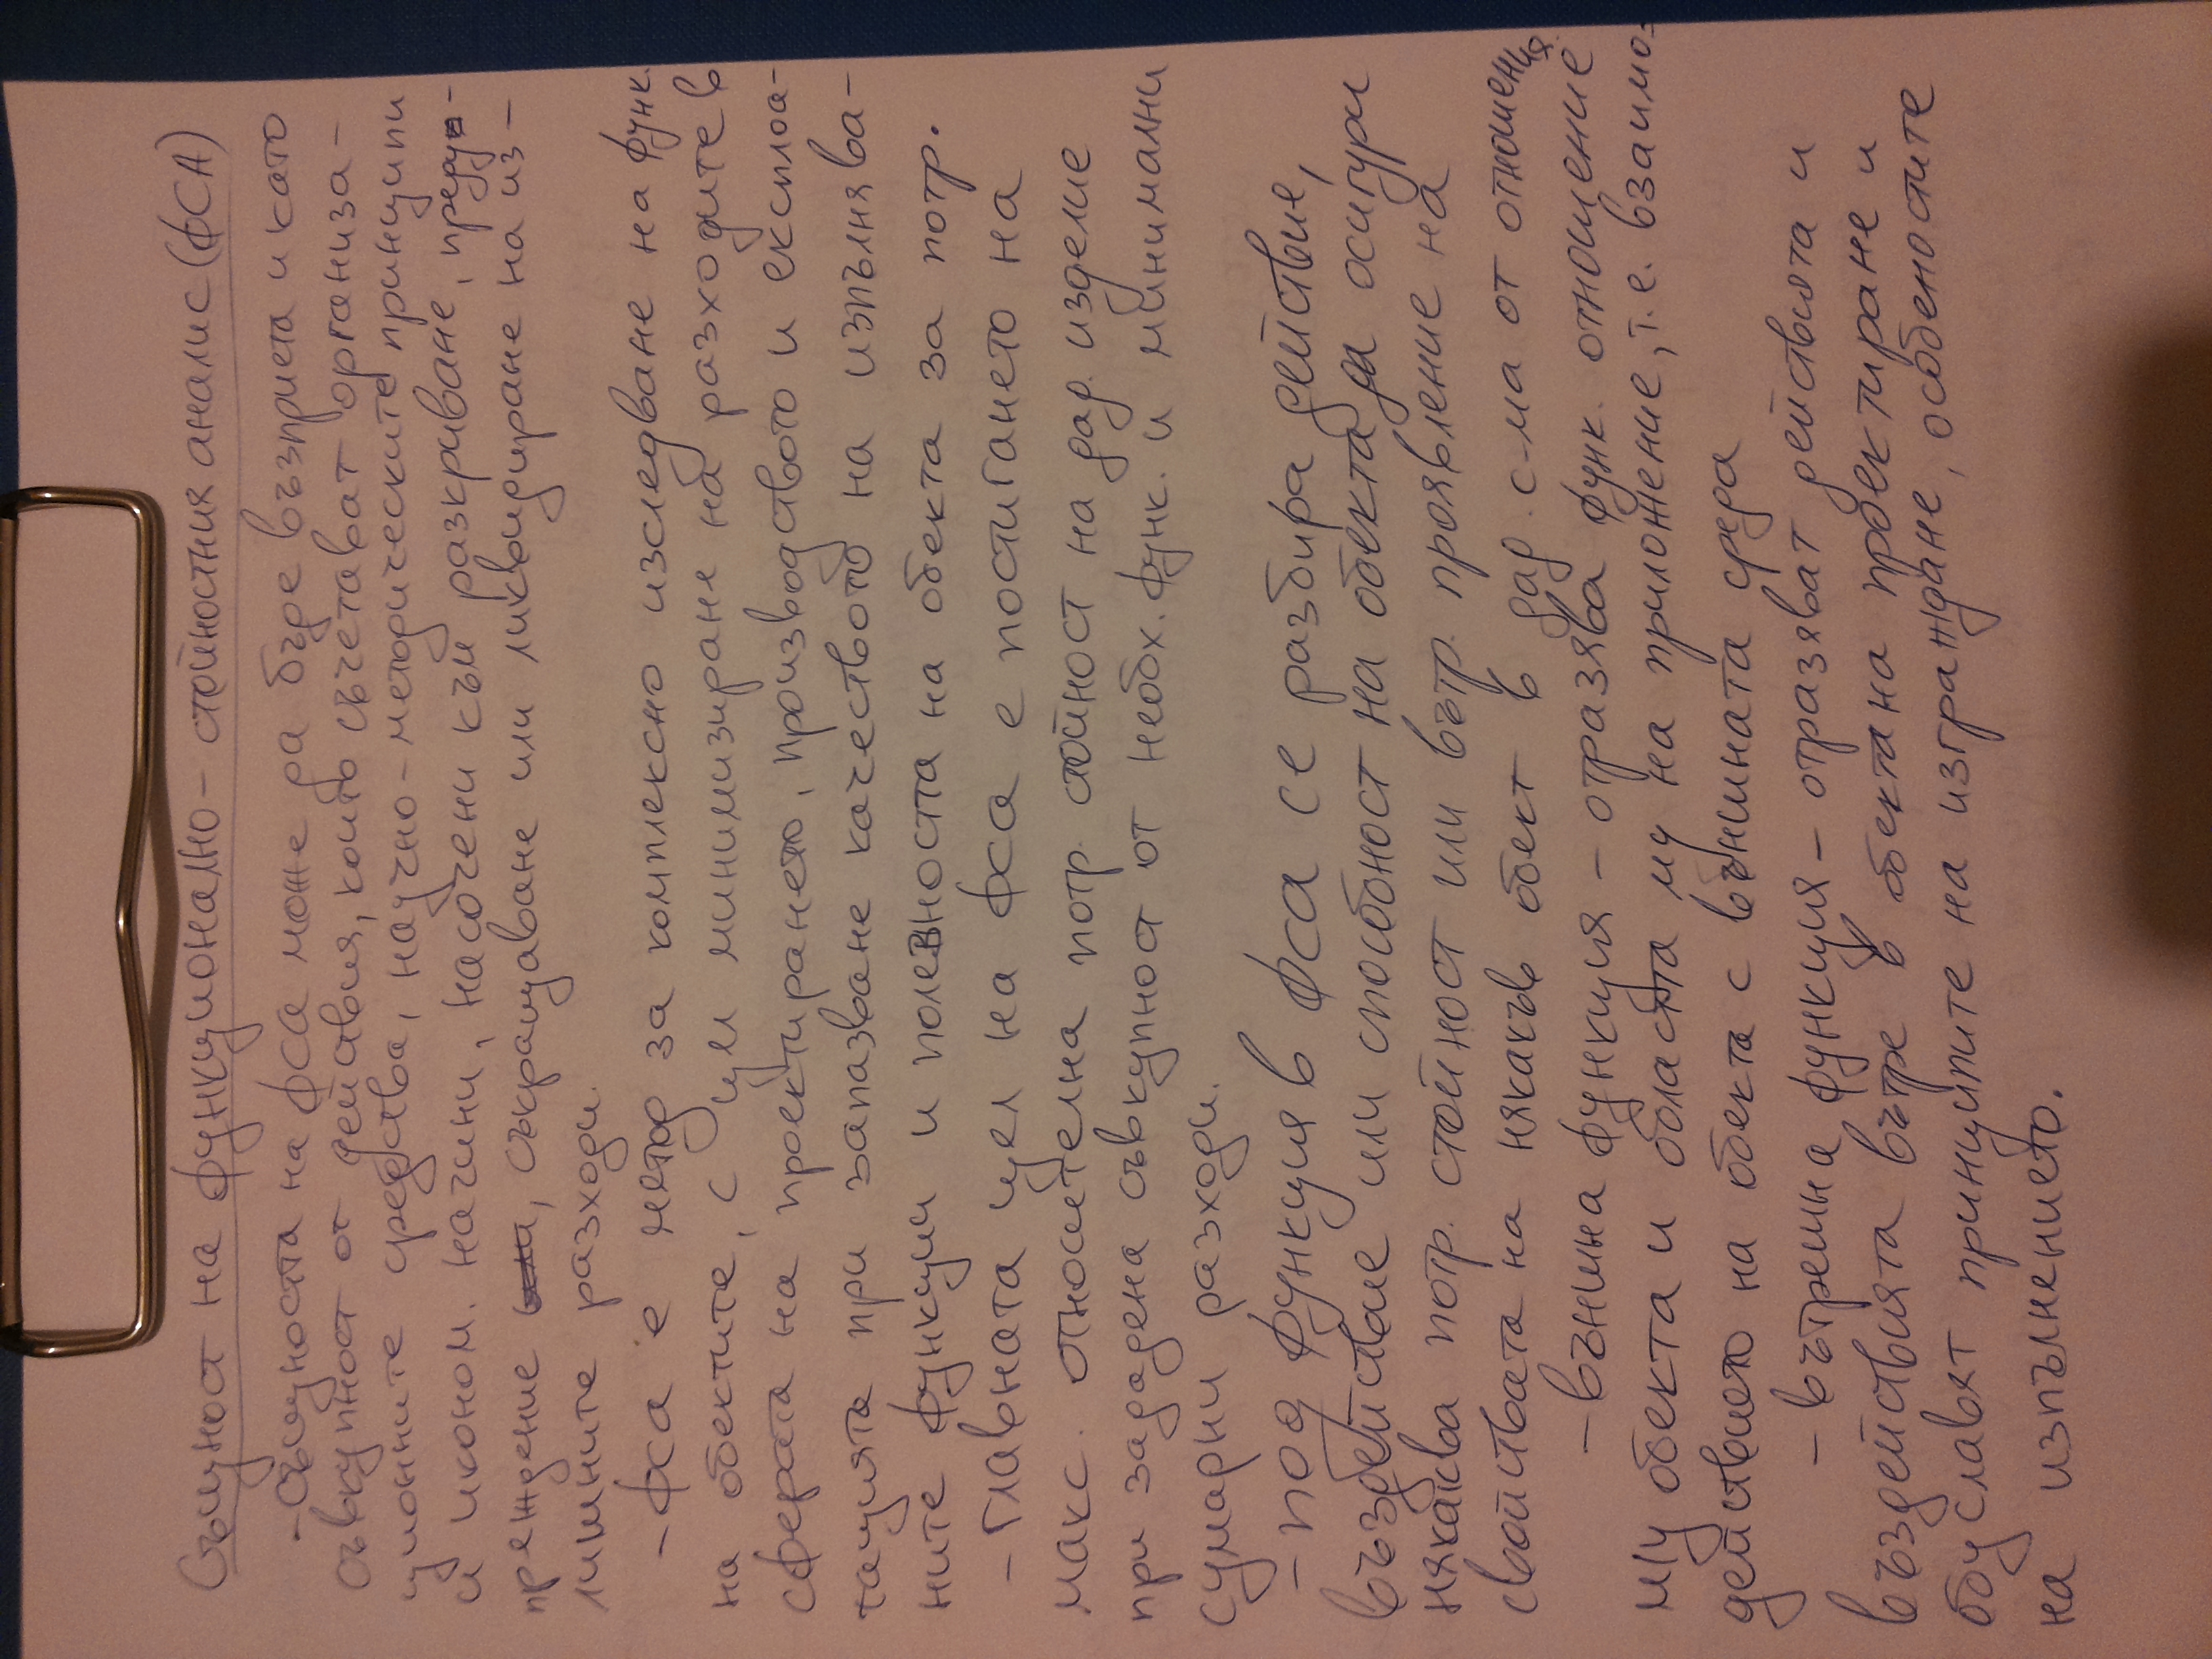 Същност на функционално-стойностния анализ (ФСА)
-Същността на ФСА може да бъде възприета и като
съвкупност от действия, които съчетават организа-
ционните средства, научно-методическите принципи
и иконом. начини, насочени към разкриване, преду-
преждение, съкращаване или ликвидиране на из-
лишните разходи.
-ФСА е метод за комплексно изследване на функ.
на обектите, с цел минимизиране на разходите в
сферата на проектирането, производството и експлоа-
тацията при запазване качеството на изпълнява-
ните функции и полезността на обекта за потр.
-Главната цел на ФСА е постигането на
макс. относителна потр. стойност на дад. изделие
при зададена съвкупност от необх. функ. и минимални
сумарни разходи.
-под функция в ФСА се разбира действие,
въздействие или способност на обекта да осигури
някаква потр. стойност или вътр. проявление на
свойствата на някакъв обект в дад. с-ма от отношения
-външна функция - отразява функ. отношение
м/у обекта и областта му на приложение, т.е. взаимо-
действието на обекта с външната среда
-вътрешна функция - отразяват действията и
въздействията вътре в обекта на проектиране и
буславят принципите на изграждане, особеностите
на изпълнението.